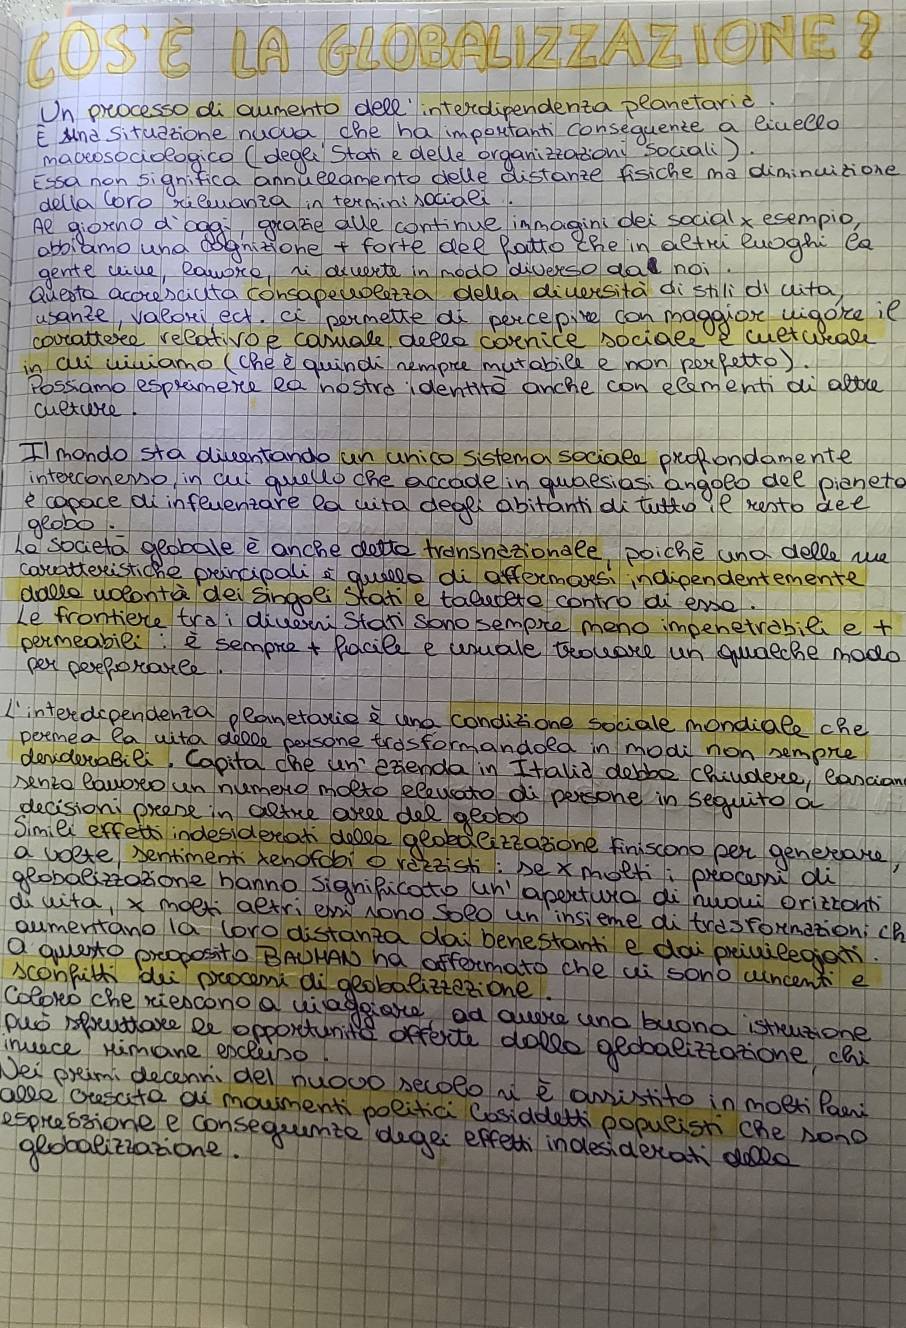 COS'È LA GLOBALIZZAZIONE?
Un processo di aumento dell'interdipendenza planetaria.
È una situazione nuova, che ha importanti conseguenze a livello
macrosociologico (degli Stati e delle organizzazioni sociali).
Essa non significa annullamento delle distanze fisiche ma diminuizione
della loro rilevanza in termini sociali.
Al giorno d'oggi, grazie alle continue immagini dei social x esempio,
abbiamo una cognizione + forte del fatto che in altri luoghi la
gente vive, lavora, si diverte in modo diverso dal noi.
Questa accresciuta consapevolezza della diversità di stili di vita,
usanze, valori ect. ci permette di percepire con maggior vigore il
carattere relativo e casuale della cornice sociale e culturale
in cui viviamo (che è quindi sempre mutabile e non perfetto).
Possiamo esprimere la nostra identità anche con elementi di altre
culture.
Il mondo sta diventando un unico sistema sociale profondamente
interconesso, in cui quello che accade in qualsiasi angolo del pianeta
è capace di influenzare la vita degli abitanti di tutto il resto del
globo.
La società globale è anche detta transnazionale, poichè una delle sue
caratteristiche principali è quella di affermarsi indipendentemente
dalla volontà dei singoli Stati e talvolta contro di essa.
Le frontiere tra i diversi Stati sono sempre meno impenetrabili e +
permeabili: è sempre + facile e usuale trovare un qualche modo
per perforarle.
L'interdipendenza planetaria è una condizione sociale mondiale che
permea la vita delle persone trasformandola in modi non sempre
desiderabili. Capita che un'azienda in Italia debba chiudere, lascian
senza lavoro un numero molto elevato di persone in seguito a
decisioni prese in altre aree del globo
Simili effetti indesiderati della globalizzazione finiscono per generare,
a volte, sentimenti xenofobi o razzisti: se x molti i processi di
globalizzazione hanno significato un'apertura di nuovi orizzonti
di vita, x molti altri essi sono solo un insieme di trasformazioni ch
aumentano la loro distanza dai benestanti e dai privilegiati.
A questo proposito BAUMAN ha affermato che vi sono vincenti e
sconfitti dei processi di globalizzazione.
Coloro che riescono a viaggiare, ad avere una buona istruzione
può sfruttare le opportunità offerte dalla globalizzazione, chi
invece rimane escluso.
Nei primi decenni del nuovo secolo si è assistito in molti Paesi
alla crescita di movimenti politici cosiddetti populisti che sono
espressione e conseguenza degli effetti indesiderati della
globalizzazione.